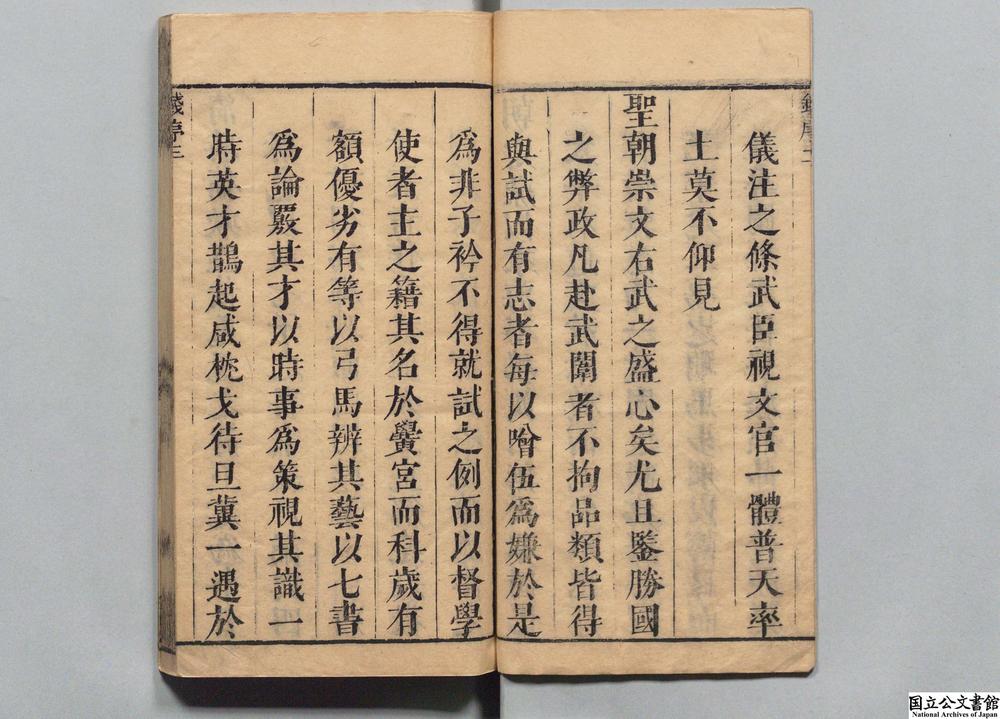 儀注之條武臣視文官一體普天率
土莫不仰見
聖朝崇文右武之盛心矣尤且鑒勝國
之弊政凡赴武闈者不拘品類皆得
與試而有志者每以噲伍爲嫌於是
爲非子衿不得就試之例而以督學
使者主之籍其名於黌宮而科歲有
額優劣有等以弓馬辨其藝以七書
爲論覈其才以時事爲策視其識一
時英才鵲起咸枕戈待旦冀一遇於
錢序三
国立公文書館
National Archives of Japan